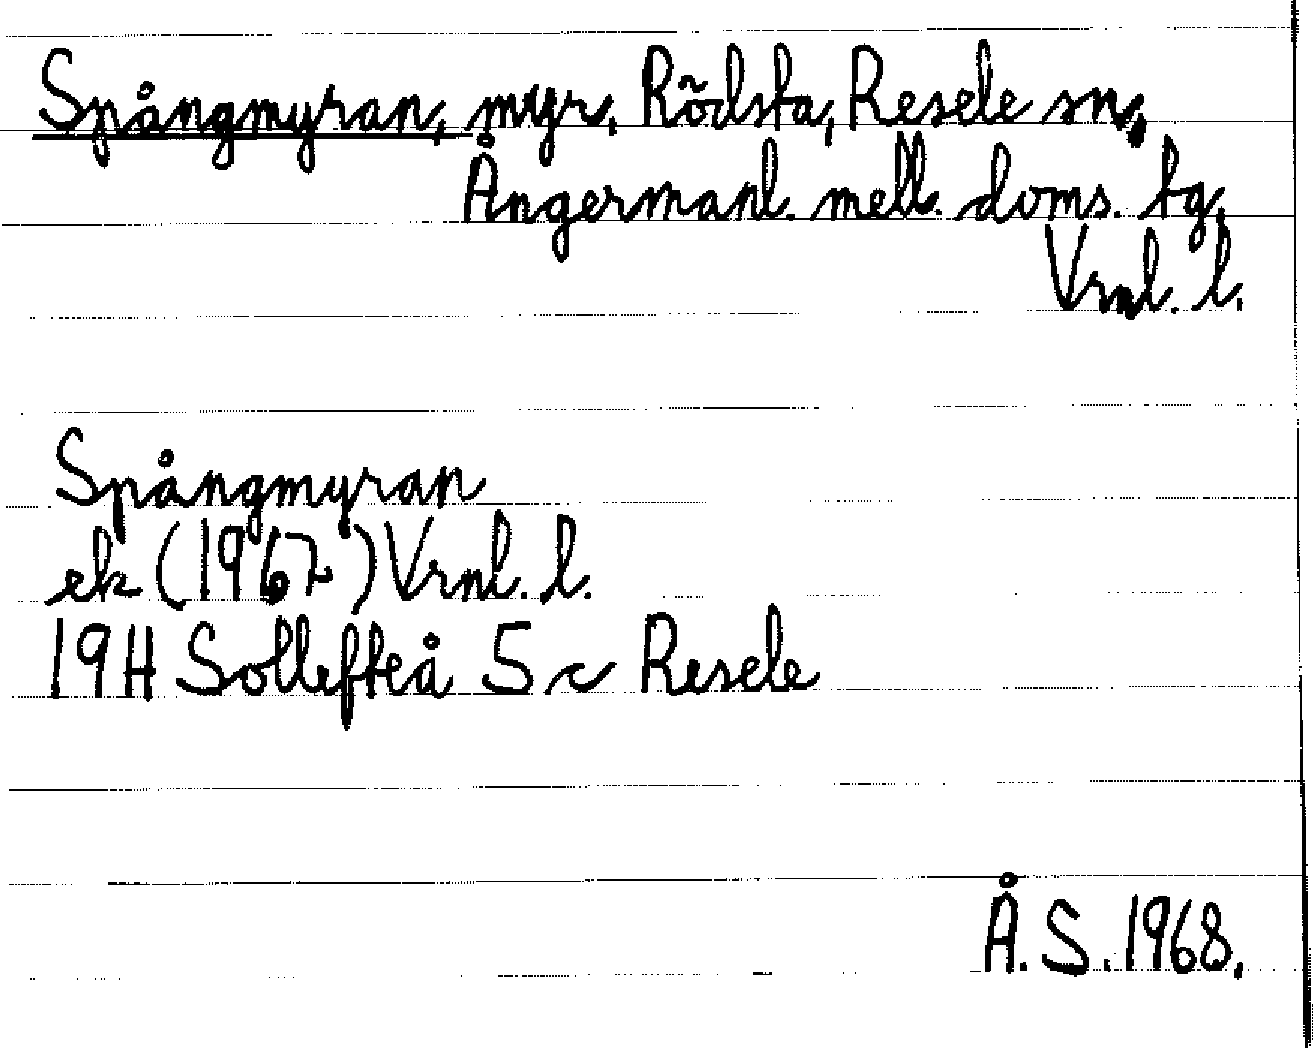 Spångmyran, myr, Rödsta, Resele sn,
Ångermanl. mell. doms. tg,
Vrnl. l.
Spångmyran
ek (1967) Vrnl. l.
19H Sollefteå 5 c Resele
Å. S. 1968.